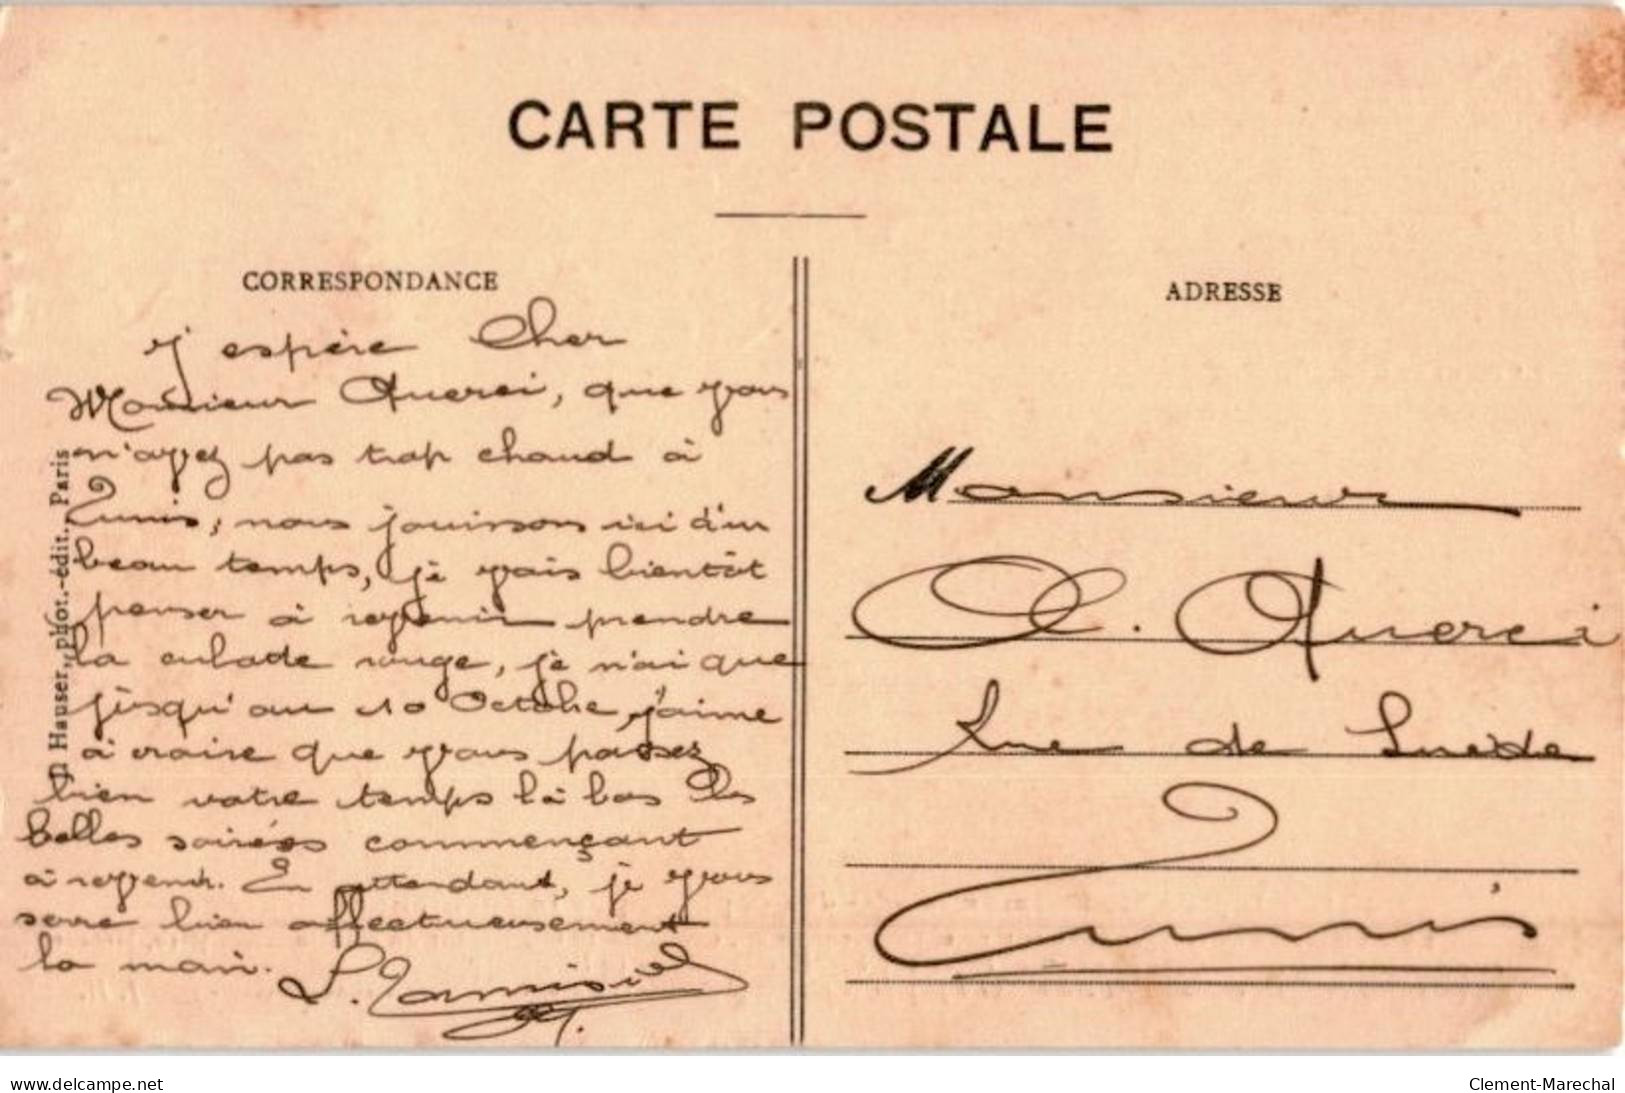 CARTE POSTALE
CORRESPONDANCE
J'espère Cher
Monsieur Querci, que vous
n'ayez pas trop chaud à
Tunis, nous jouissons ici d'un
beau temps, je vais bientôt
penser à revenir prendre
la culade rouge, je n'ai que
jusqu'au 10 Octobre, j'aime
à croire que vous passez
bien votre temps là bas les
belles soirées commençant
à revenir. En attendant, je vous
serre bien affectueusement
la main.
Hauser, phot.-édit., Paris
ADRESSE
Monsieur
Querci
Rue de Suède
Tunis
delcampe.net
Clement-Marechal